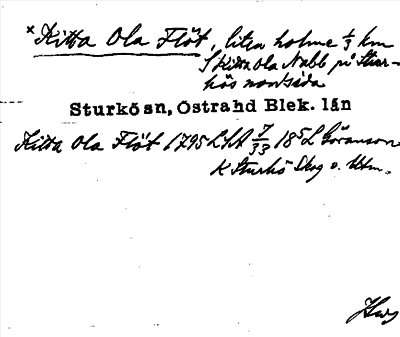 × Kitta Ola Flöt, liten holme 1/3 km
S Kitta Ola Nabb på Stur-
kös nordsida
Sturkö sn, Östra hd Blek. län
Kitta Ola Flöt 1795 LSA 7/33 18 5 L Göranson
K Sturkö Skog o. Utm.